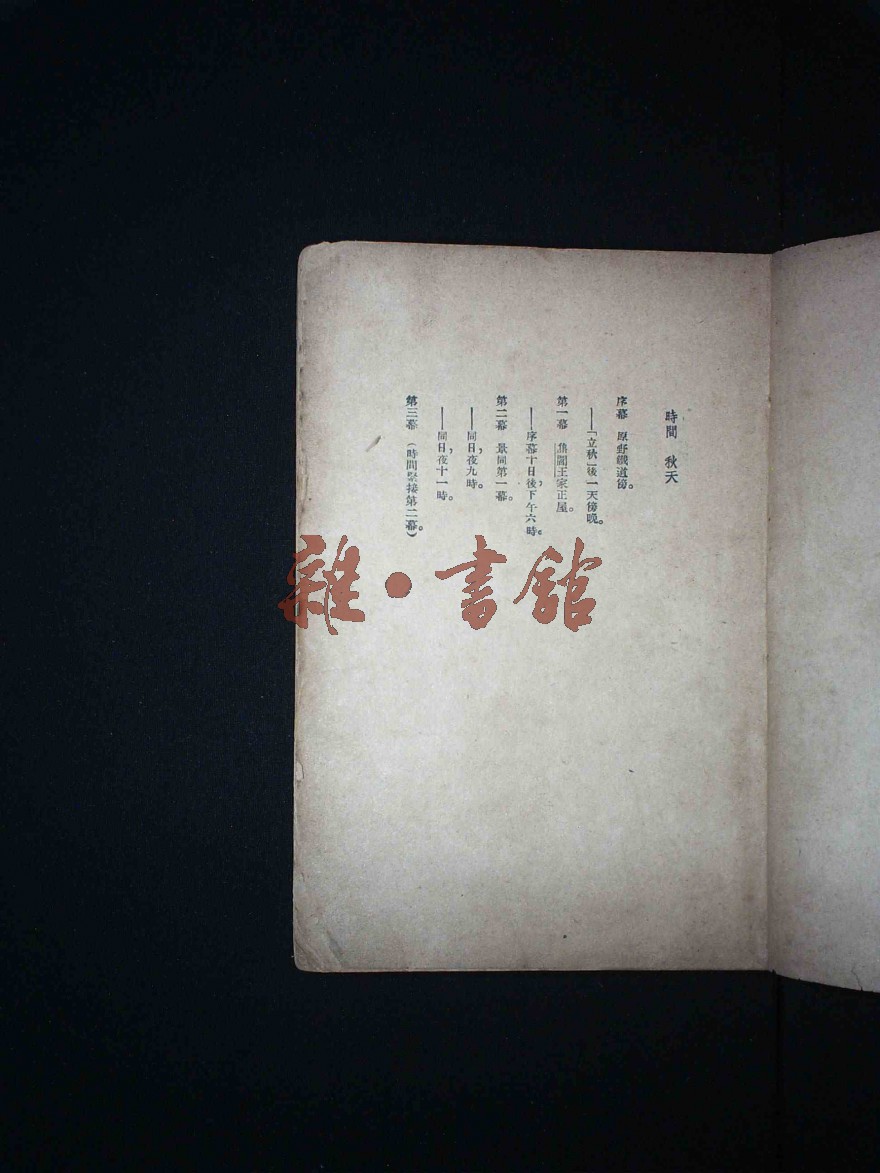 時間　秋天
序幕　原野鐵道傍。
——「立秋」後一天傍晚。
第一幕　焦閻王家正屋。
——序幕十日後，下午六時。
第二幕　景同第一幕。
——同日，夜九時。
——同日，夜十一時。
第三幕（時間緊接第二幕）。
雜·書館